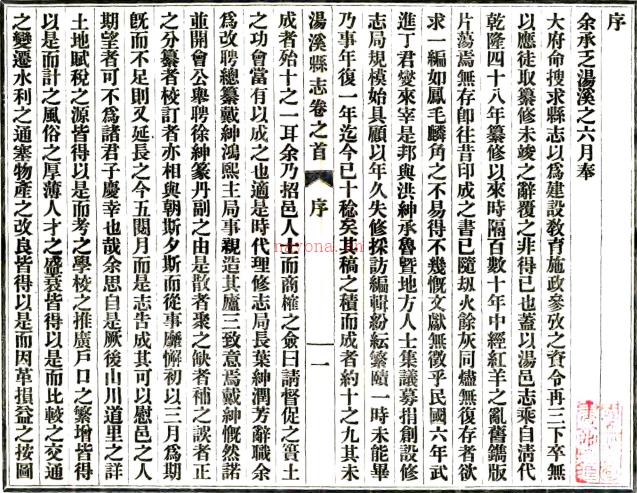 序
余承乏湯溪之六月奉
大府命搜求縣志以爲建設教育施政參攷之資令再三下卒無
以應徒取纂修未竣之辭覆之非得已也蓋以湯邑志乘自清代
乾隆四十八年纂修以來時隔百數十年中經紅羊之亂舊鐫版
片蕩焉無存卽往昔印成之書已隨刼火餘灰同燼無復存者欲
求一編如鳳毛麟角之不易得不幾慨文獻無徵乎民國六年武
進丁君燮來宰是邦與洪紳承魯曁地方人士集議募捐創設修
志局規模始具顧以年久失修採訪編輯紛紜繁賾一時未能畢
乃事年復一年迄今已十稔矣其稿之積而成者約十之九其未
湯溪縣志卷之首
序
一
成者殆十之一耳余乃招邑人士而商榷之僉曰請督促之簣土
之功會當有以成之也適是時代理修志局長葉紳潤芳辭職余
爲改聘總纂戴紳鴻熙主局事親造其廬三致意焉戴紳慨然諾
並開會公舉聘徐紳篆丹副之由是散者聚之缺者補之誤者正
之分纂者校訂者亦相與朝斯夕斯而從事靡懈初以三月爲期
旣而不足則又延長之今五閱月而是志告成其可以慰邑之人
期望者可不爲諸君子慶幸也哉余思自是厥後山川道里之詳
土地賦稅之源皆得以是而考之學校之推廣戶口之繁增皆得
以是而計之風俗之厚薄人才之盛衰皆得以是而比較之交通
之變遷水利之通塞物產之改良皆得以是而因革損益之按圖
nayona.cn